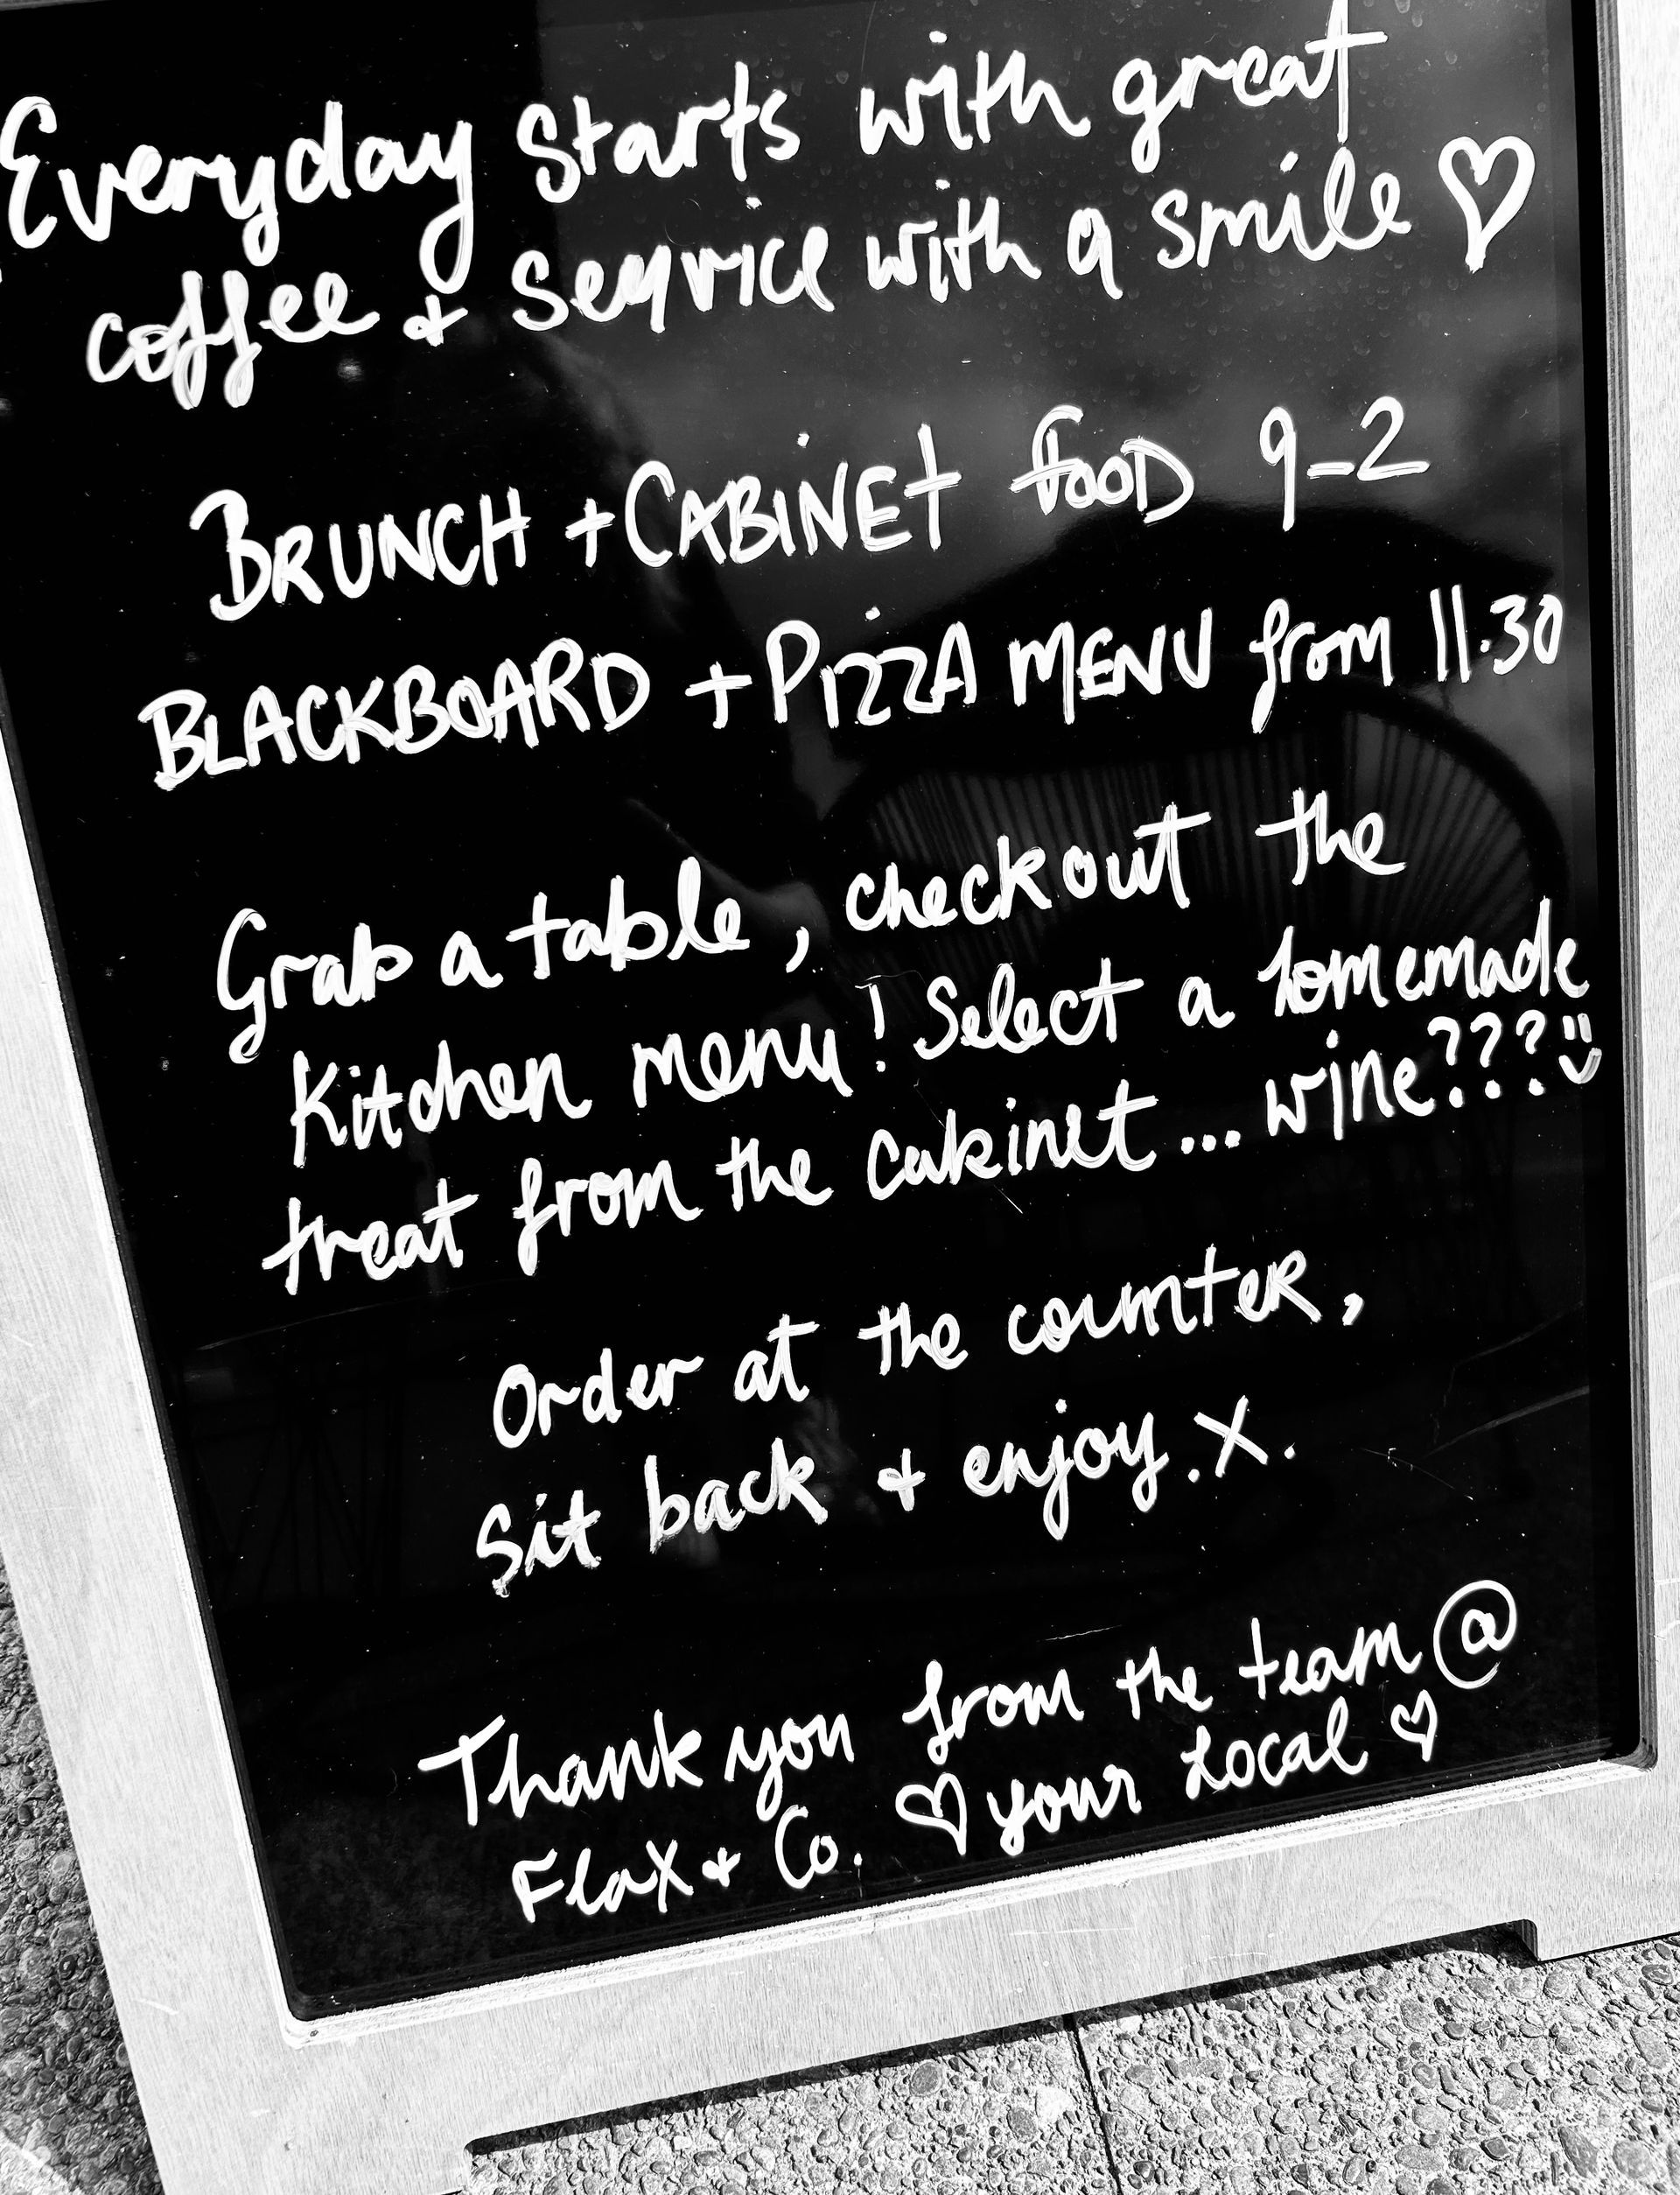 Everyday starts with great
coffee & service with a smile ♡
BRUNCH + CABINET FOOD 9-2
BLACKBOARD + PIZZA MENU from 11.30
Grab a table, checkout the
Kitchen menu! Select a homemade
treat from the cabinet... wine??? :)
Order at the counter,
Sit back & enjoy. X.
Thank you from the team @
Flax & Co. ♡ your local ♡